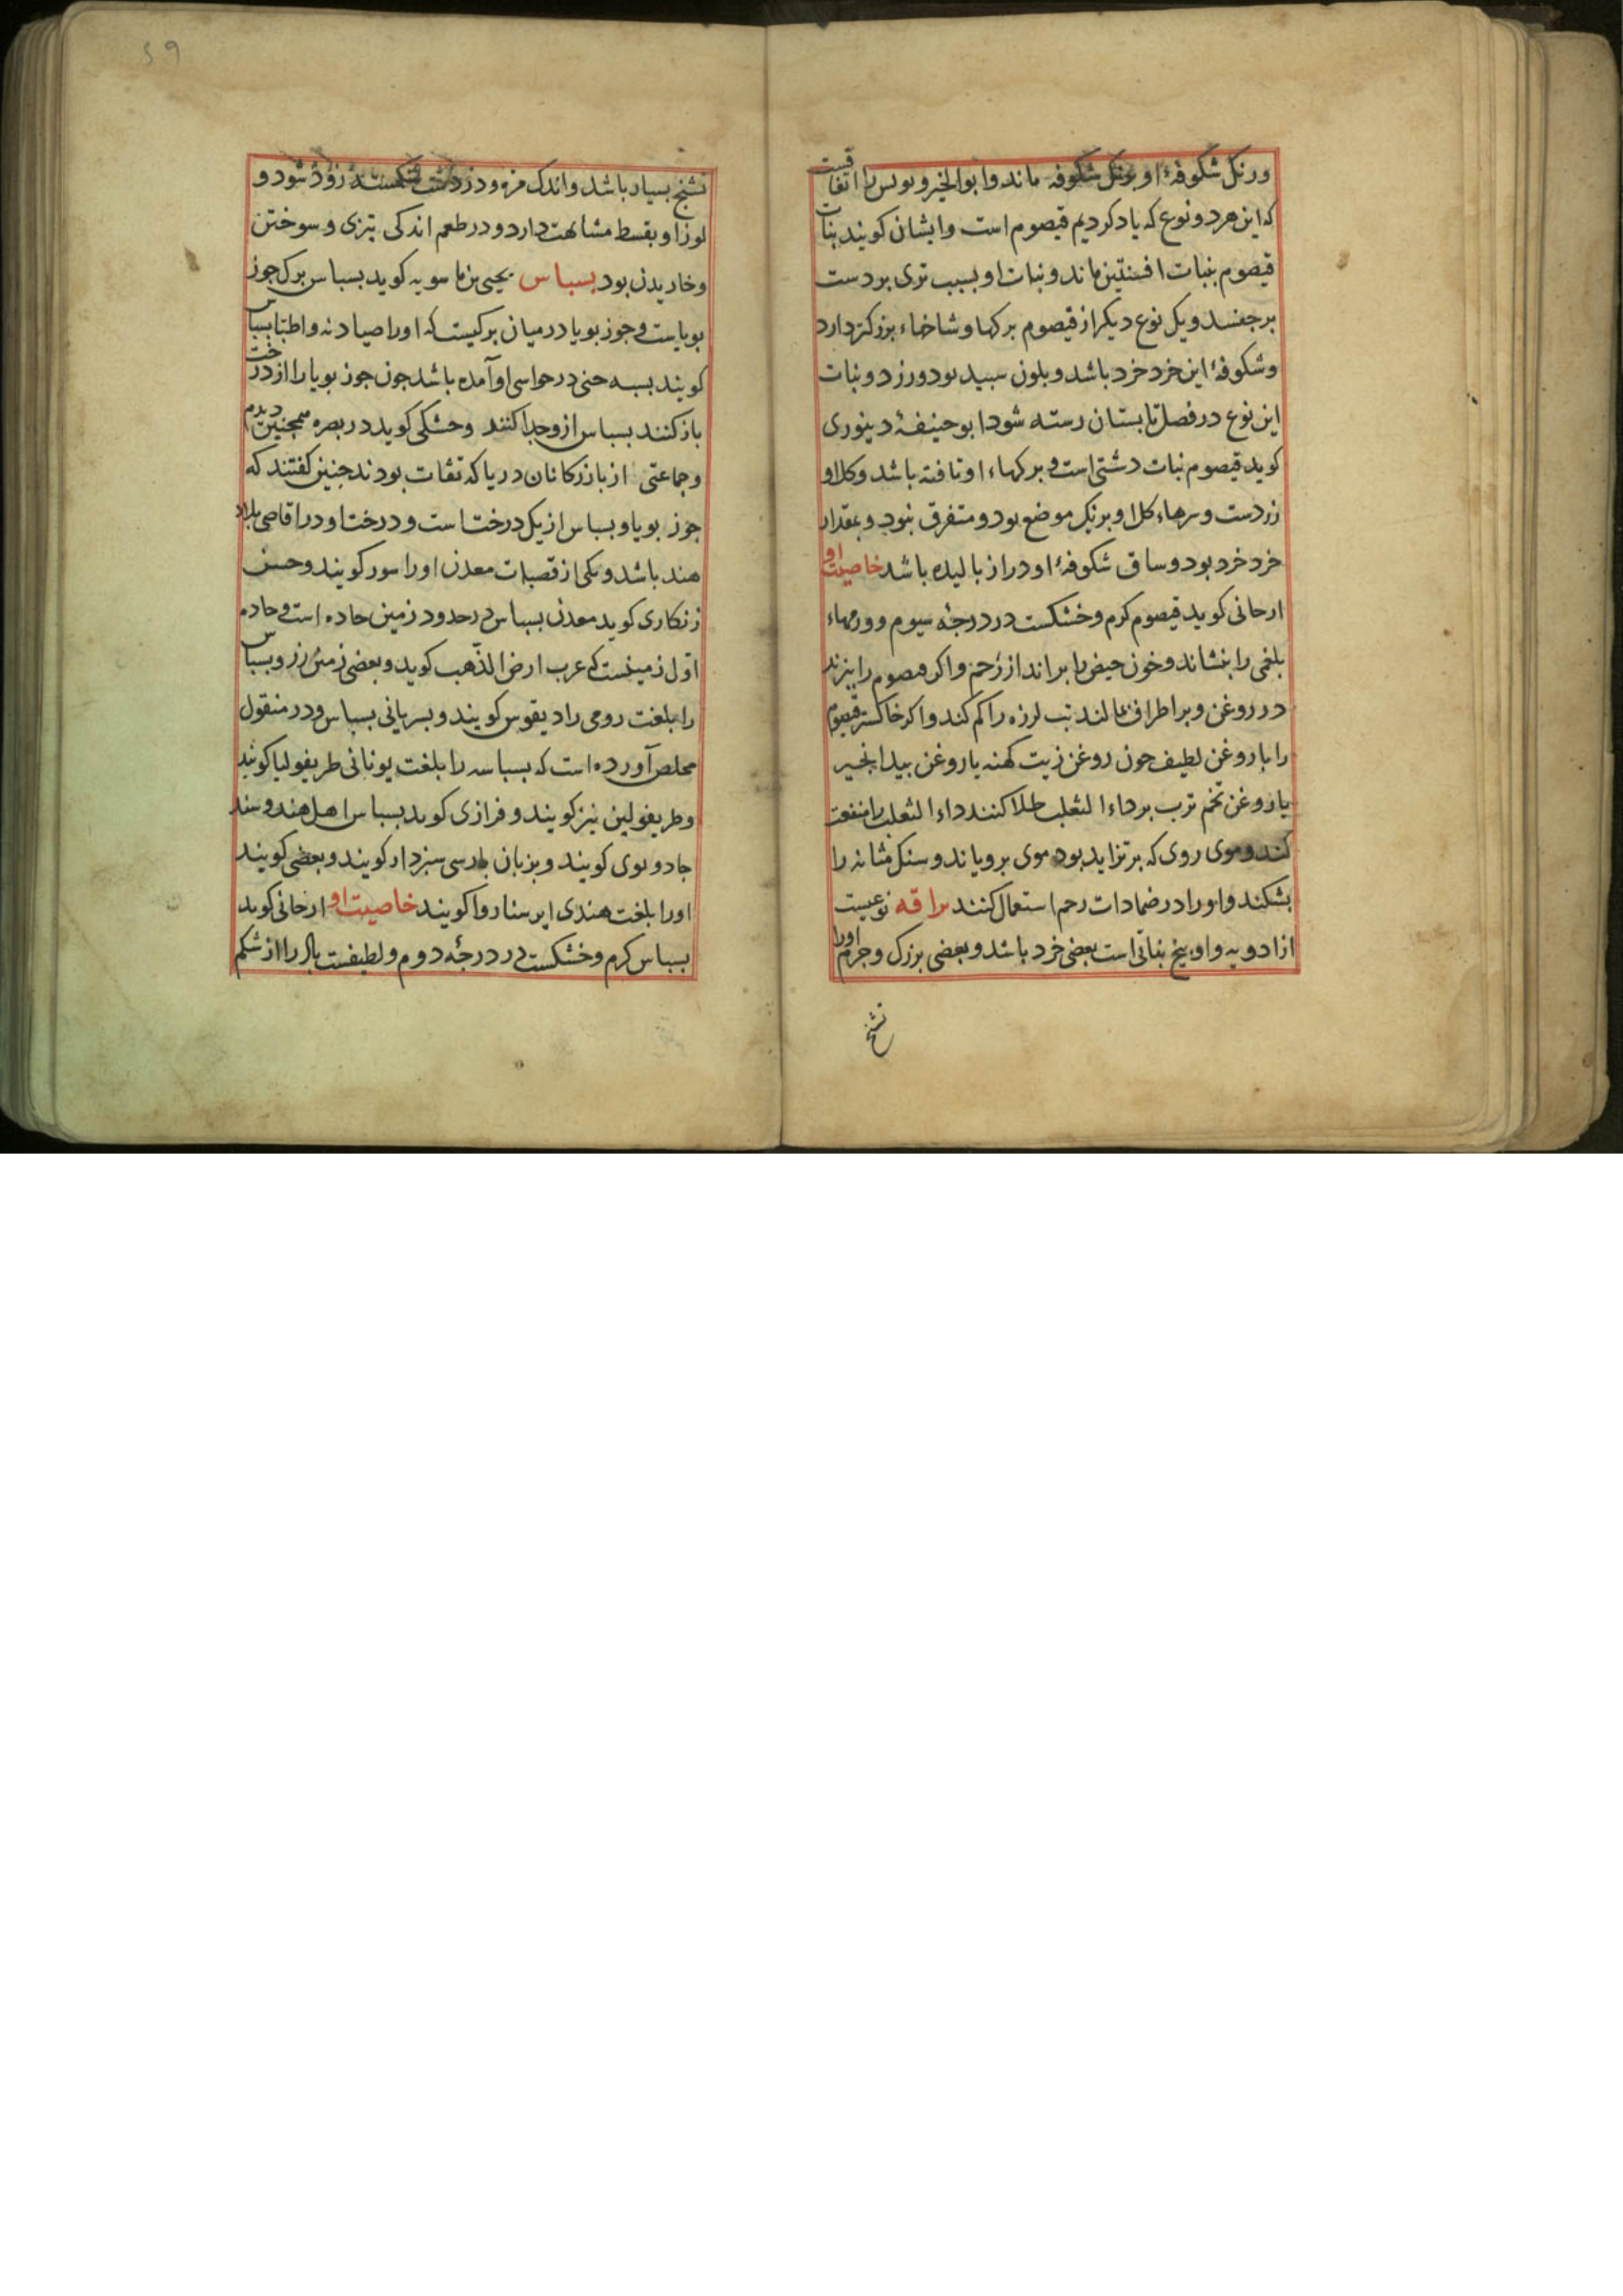 ورنک شکوفهٔ او برنک شکوفه ماند و ابوالخیر و بولس را اتفاقست
که این هر دو نوع که یاد کردیم قیصوم است وایشان کویند نبات
قیصوم بنبات افسنتین ماند و نبات او بسبب تری بر دست
برجفسد و یک نوع دیکر از قیصوم برکها و شاخهاء بزرکتر دارد
و شکوفهٔ این خرد خرد باشد و بلون سبید بود و زرد و نبات
این نوع در فصل تابستان رسته شود ابوحنیفهٔ دینوری
کوید قیصوم نبات دشتی است و برکهاء او تافته باشد و کل او
زردست و سرهاء کل او بر یک موضع بود و متفرق نبود و بمقدار
خرد خرد بود و ساق شکوفهٔ او دراز بالیده باشد خاصیت او
ارجانی کوید قیصوم کرم و خشکست در درجهٔ سیوم و ورمهاء
بلغمی را بنشاند و خون حیض را براند از رحم و اکر قیصوم را بپزند
در روغن و بر اطراف بمالند تب لرزه را کم کند و اکر خاکستر قیصوم
را با روغن لطیف جون روغن زیت کهنه یا روغن بیدانجیر
یا روغن تخم ترب بر داء الثعلب طلا کنند داء الثعلب را منفعت
کند و موی روی که بر تزاید بود موی برویاند و سنک مثانه را
بشکند و او را در ضمادات رحم استعمال کنند براقه نوعیست
از ادویه و او بیخ نباتی است بعضی خرد باشد و بعضی بزرک و جرم او را
تشنج
تشنج بسیار باشد و اندک مزه و در زود شود و
لوز او بقسط مشابهت دارد و در طعم اندکی تیزی و سوختن
و خاریدن بود بسباس یحیی بن ماسویه کوید بسباس برک جوز
بویاست و جوز بویا در میان برکیست که او را صیادنه و اطبا بسباس
کویند بسبه حنی در حواسی او آمده باشد جون جوز بویا را از درخت
باز کنند بسباس از و جدا کنند و خشکی کوید در بصره همجنین دیدم
و جماعتی از بازرکانان دریا که ثقات بودند جنین کفتند که
جوز بویا و بسباس از یک درخت است و درخت او در اقاصی بلاد
هند باشد و یکی از قصبات معدن او را سور کویند و حسن
زنکاری کوید معدن بسباس در حدود زمین جاده است و جاده
اول زمینست که عرب ارض الذهب کوید و بعضی زمین زر و بسباس
را بلغت رومی رادیقوس کویند و بسریانی بسباس و در منقول
مخلص آورده است که بسباسه را بلغت یونانی طریفولیا کویند
و طریفولین نیز کویند و فرازی کوید بسباس اهل هند و سند
جادو بوی کویند و بزبان پارسی سبزدار کویند و بعضی کویند
او را بلغت هندی ایرسناروا کویند خاصیت او ارجانی کوید
بسباس کرم و خشکست در درجهٔ دوم و لطیفست باد را از شکم